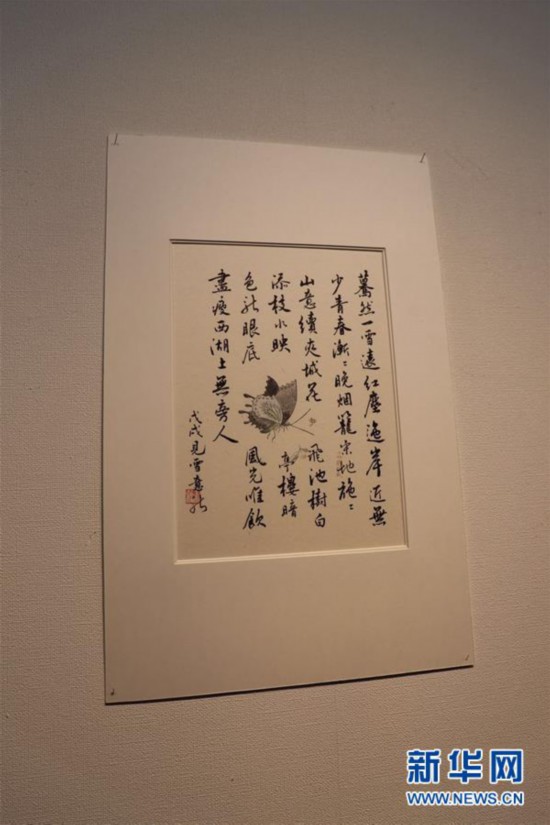 驀然一雪遠紅塵遍岸近無
少青春漸〻晚烟籠地施〻
山意續城花飛池樹白
添枝水映亭樓暗
色眼底風光唯飲
盡瘦西湖上無旁人
戊戌見雪意
新华网
WWW.NEWS.CN